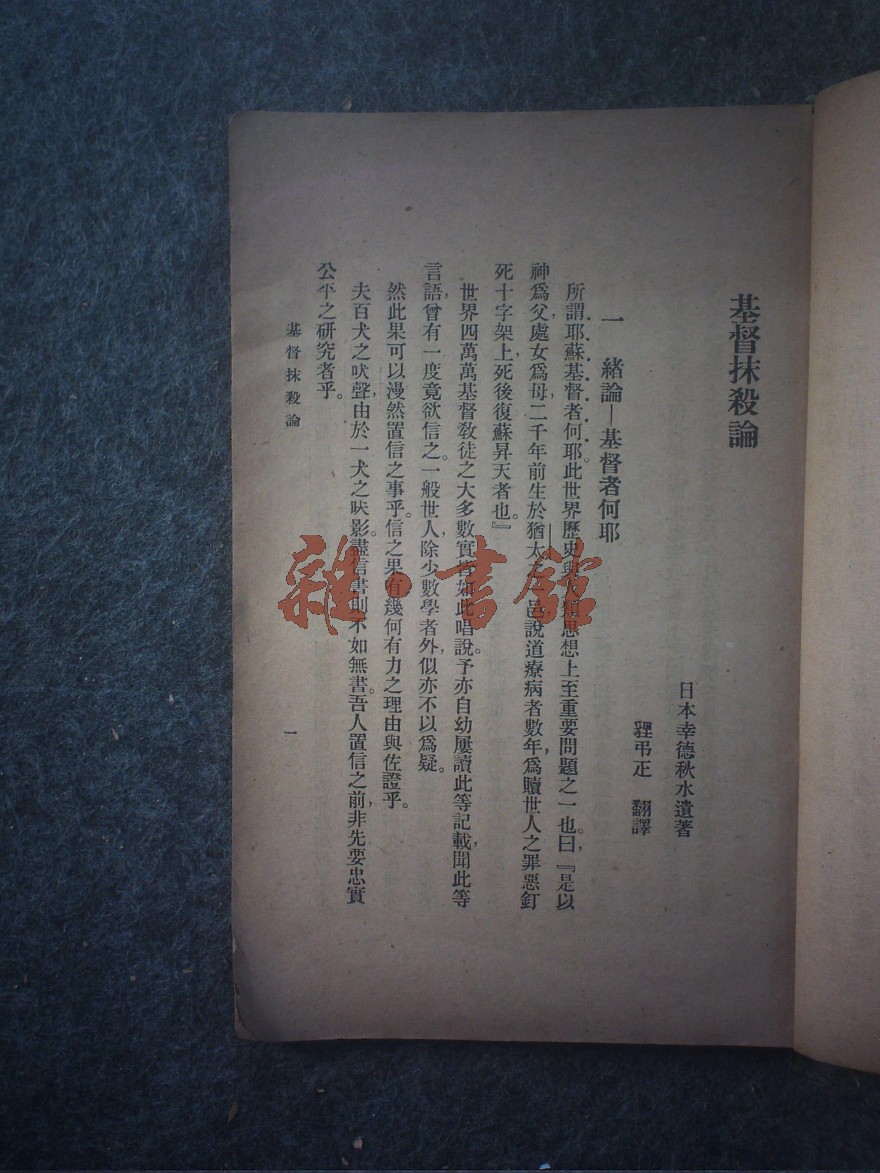 基督抹殺論
日本幸德秋水遺著
貍弔正　翻譯
一　緒論—基督者何耶
所謂耶蘇基督者何耶。此世界歷史與人類思想上至重要問題之一也。曰，『是以
神爲父，處女爲母，二千年前生於猶太之一邑，說道療病者數年，爲贖世人之罪惡，釘
死十字架上，死後復蘇昇天者也。』
世界四萬萬基督敎徒之大多數，實皆如此唱說。予亦自幼屢讀此等記載，聞此等
言語，曾有一度竟欲信之。一般世人，除少數學者外，似亦不以爲疑。
然此果可以漫然置信之事乎。信之果有幾何有力之理由與佐證乎。
夫百犬之吠聲，由於一犬之吠影。盡信書則不如無書。吾人置信之前，非先要忠實
公平之研究者乎。
基督抹殺論
一
雜·書館